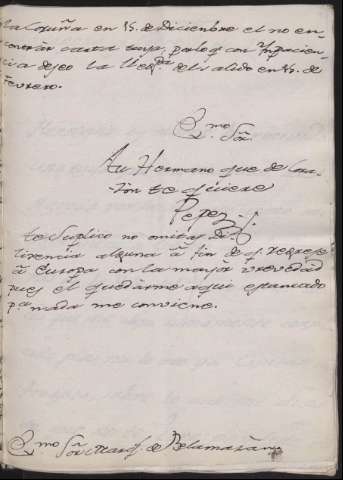 la Coruña en 15. de Diciembre el no en
contrar carta tuya, por lo q.e con Ympacien
cia deseo la lleg.da del salido en 15. de
Fevrero.
Ex.mo Sor.
Tu Hermano que de Cora-
zon te quiere
Pepe
te Suplico no omitas di-
lixencia alguna â fin de q.e regrese
â Europa con la mayor brevedad
pues el quedarme aqui estancado
p.a nada me conviene.
Ex.mo Sor. Marq.s de